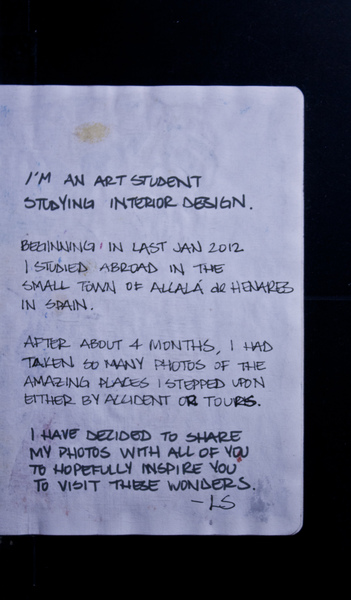 I'M AN ART STUDENT
STUDYING INTERIOR DESIGN.
BEGINNING IN LAST JAN 2012
I STUDIED ABROAD IN THE
SMALL TOWN OF ALCALÁ de HENARES
IN SPAIN.
AFTER ABOUT 4 MONTHS, I HAD
TAKEN SO MANY PHOTOS OF THE
AMAZING PLACES I STEPPED UPON
EITHER BY ACCIDENT OR TOURS.
I HAVE DECIDED TO SHARE
MY PHOTOS WITH ALL OF YOU
TO HOPEFULLY INSPIRE YOU
TO VISIT THESE WONDERS.
-LS